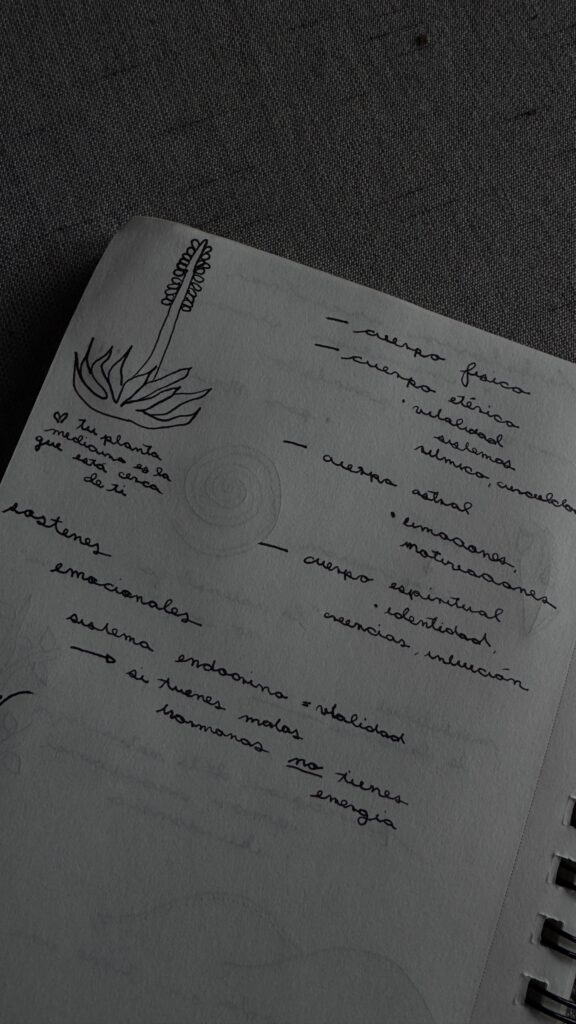 — cuerpo físico
— cuerpo etérico
• vitalidad
sistemas
— cuerpo astral
• emociones,
motivaciones
— cuerpo espiritual
• identidad,
creencias, intuición
♡ tu planta
medicina es la
que está cerca
de ti
sostenes
emocionales
sistema endocrino = vitalidad
→ si tienes malas
hormonas no tienes
energía